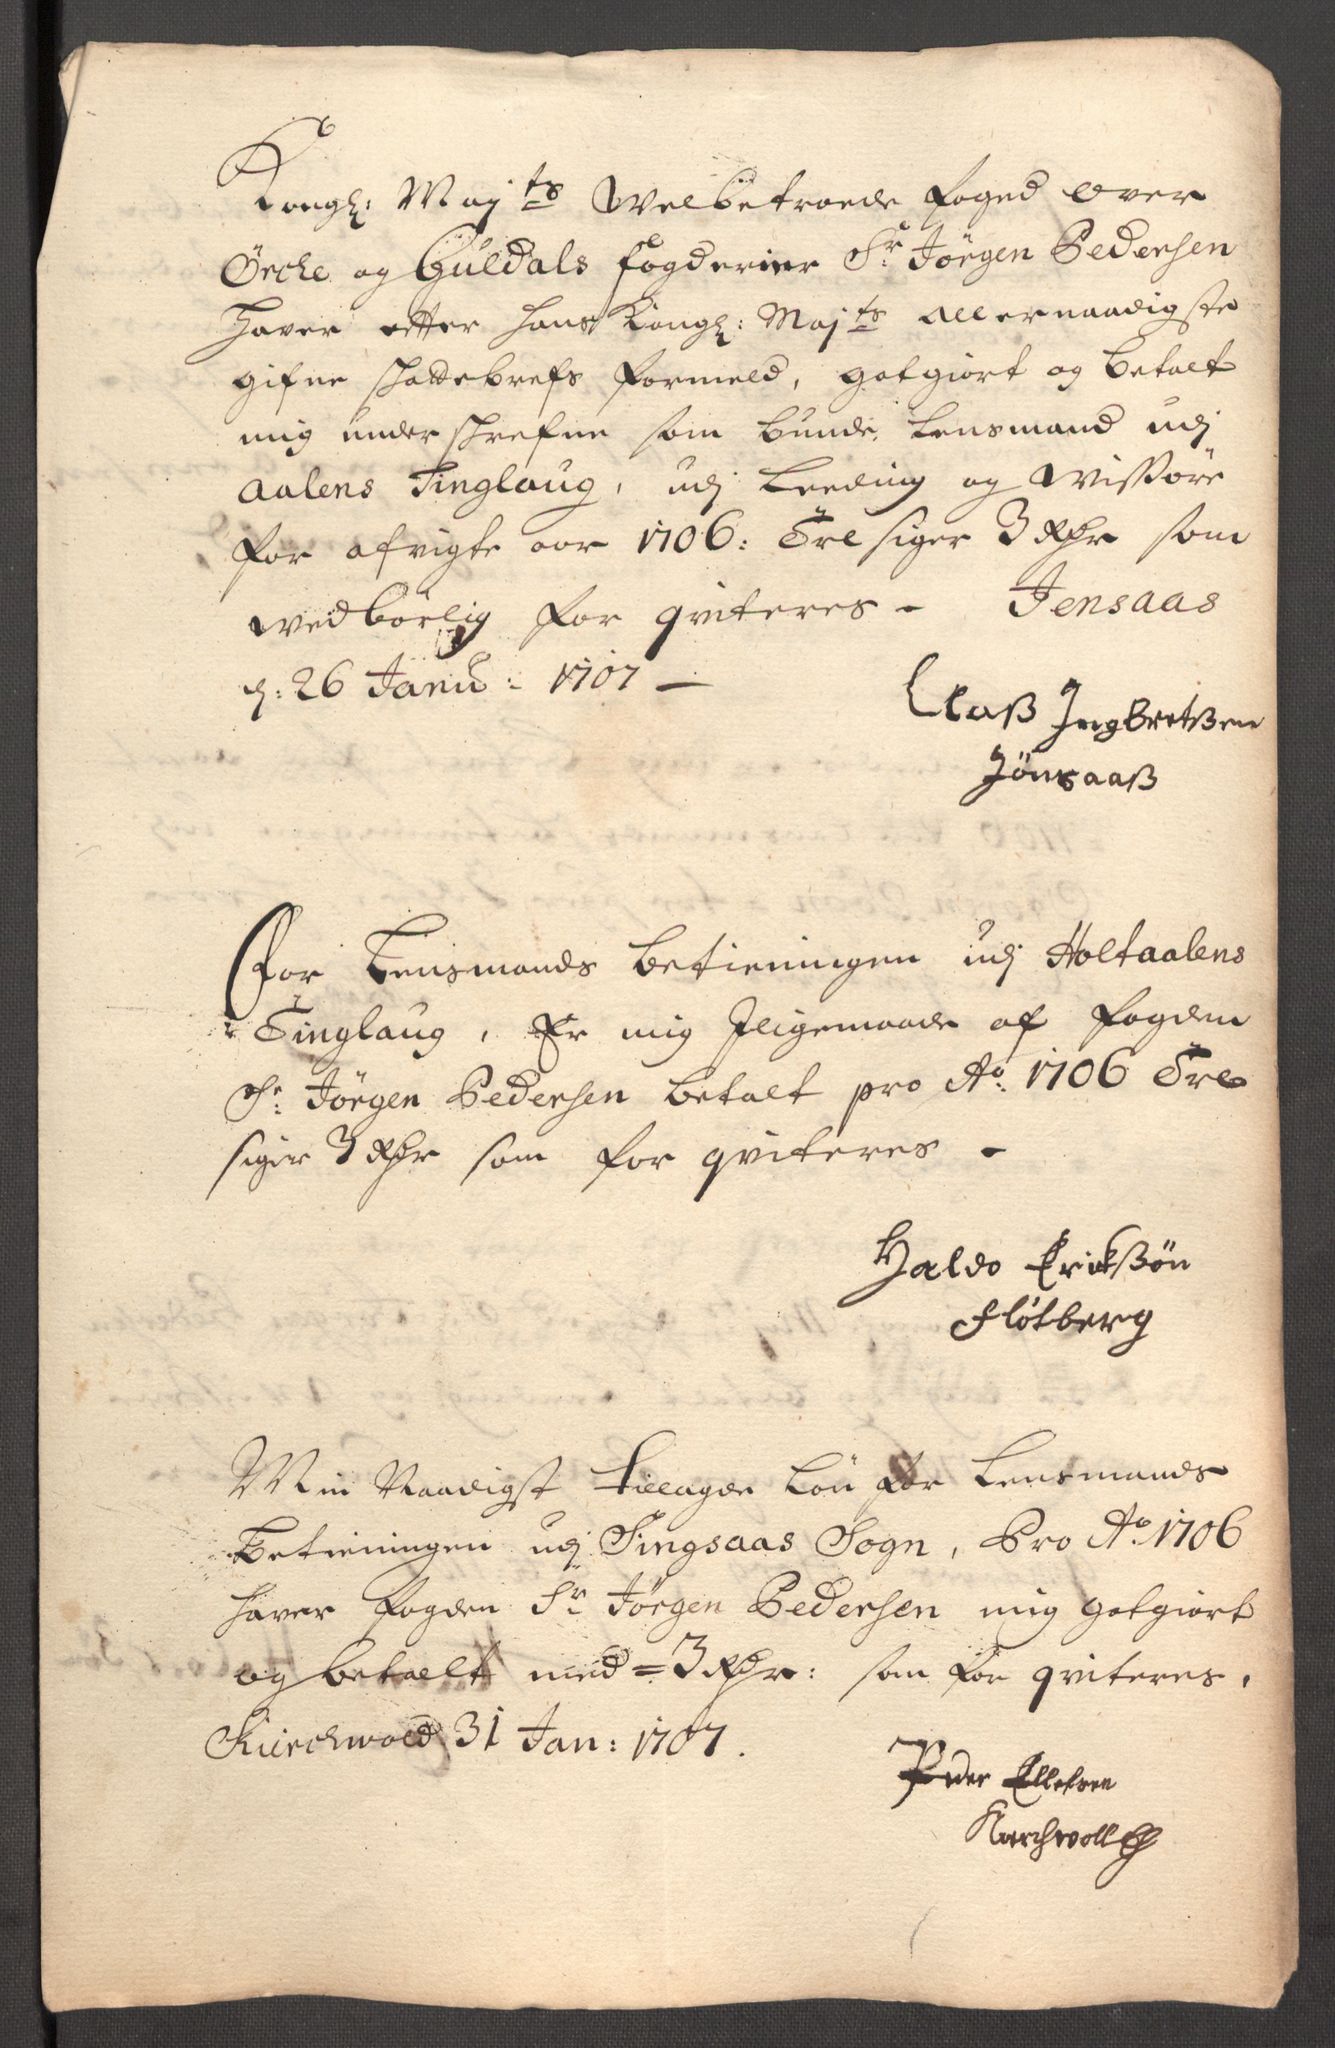 Kongl: Maj.ts Welbetroede foged over
Örche og Guldals fogderier Sr Jörgen Pedersen
haver effter hans Kongl: Maj.ts allernaadigste
gifne schattebrefs formeld, gotgiort og betalt
mig underschrefne som bunde lensmand udj
Aalens Tinglaug, udj Leeding og Wissöre
for afvigte aar 1706: Tre siger 3 Rdr som
wedbörlig for qviteres - Jensaas
d: 26 Janu: 1707 —
Claß Ingbretßen
Jönsaaß
For Lensmands betieningen udj Holtaalens
Tinglaug, Er mig Iligemaade af fogden
Sr: Jörgen Pedersen betalt pro Ao: 1706 Tre
siger 3 Rdr som for qviteres -
Haldo Erickßön
Flötberg
Min Naadigst tillagde lön for Lensmands
betieningen udj Singsaas Sogn, Pro Ao. 1706
haver fogden Sr Jörgen Pedersen mig gotgiort
og betallt med = 3 Rdr: som for qviteres,
Kierchwold 31 Jan: 1707.
Peder Ellefsen
Kierchwoll